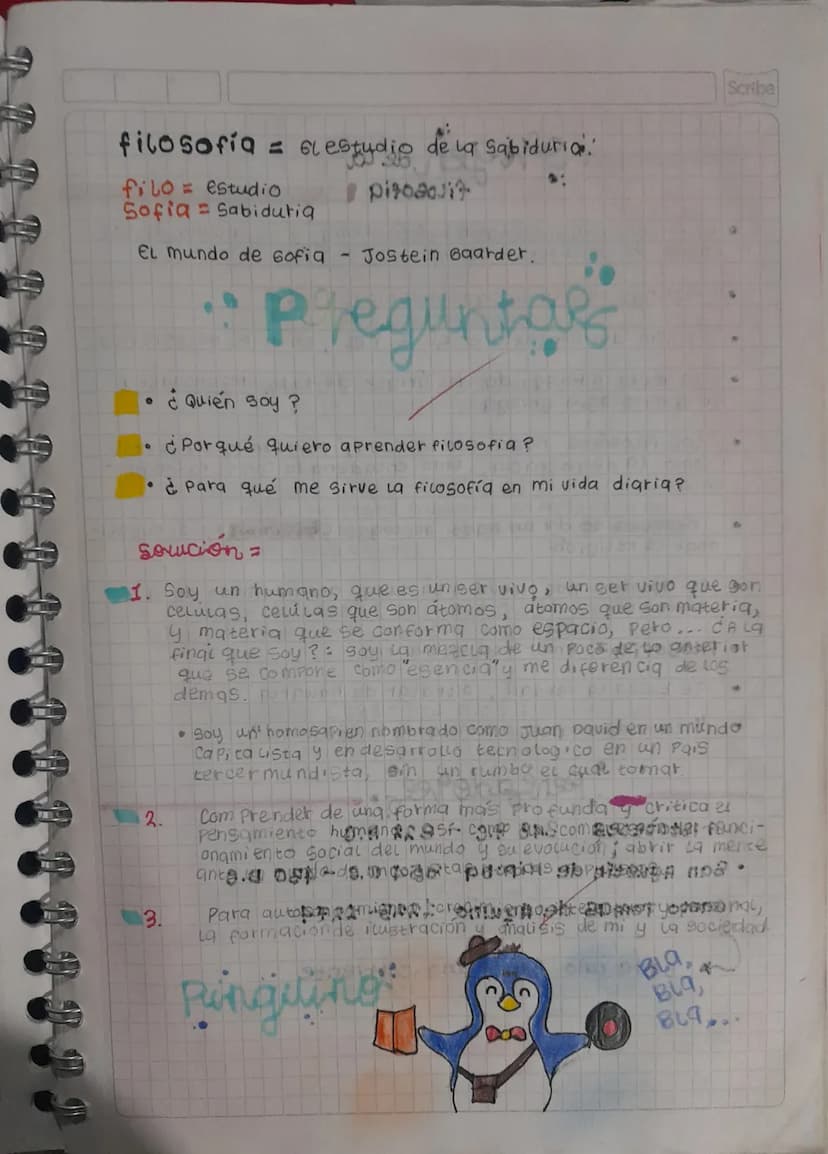 Scribe
filosofía = El estudio de la sabiduria.
filo = estudio
Sofía = Sabiduria
El mundo de Sofia - Jostein Gaarder.
Preguntas
• ¿Quién soy?
• ¿Porqué quiero aprender filosofia?
• ¿Para qué me sirve la filosofía en mi vida diaria?
Solución =
1. Soy un humano, que es un ser vivo, un ser vivo que son
celulas, celúlas que son átomos, átomos que son materia,
y materia que se conforma como espacio, pero... ¿A la
final que soy?: soy la mezcla de un poco de lo anterior
que se compone como "esencia" y me diferencia de los
demas.
• Soy un homosapien nombrado como Juan David en un mundo
capitalista y en desarrollo tecnologico en un país
tercermundista, sin un rumbo el cual tomar
2. Comprender de una forma más profunda y critica el
pensamiento humano, así como funci-
onamiento social del mundo y su evolución; abrir la mente
3. Para personal,
la formación de ilustración y análisis de mi y la sociedad
Pinguino
BLA,
BLA,
BLA...